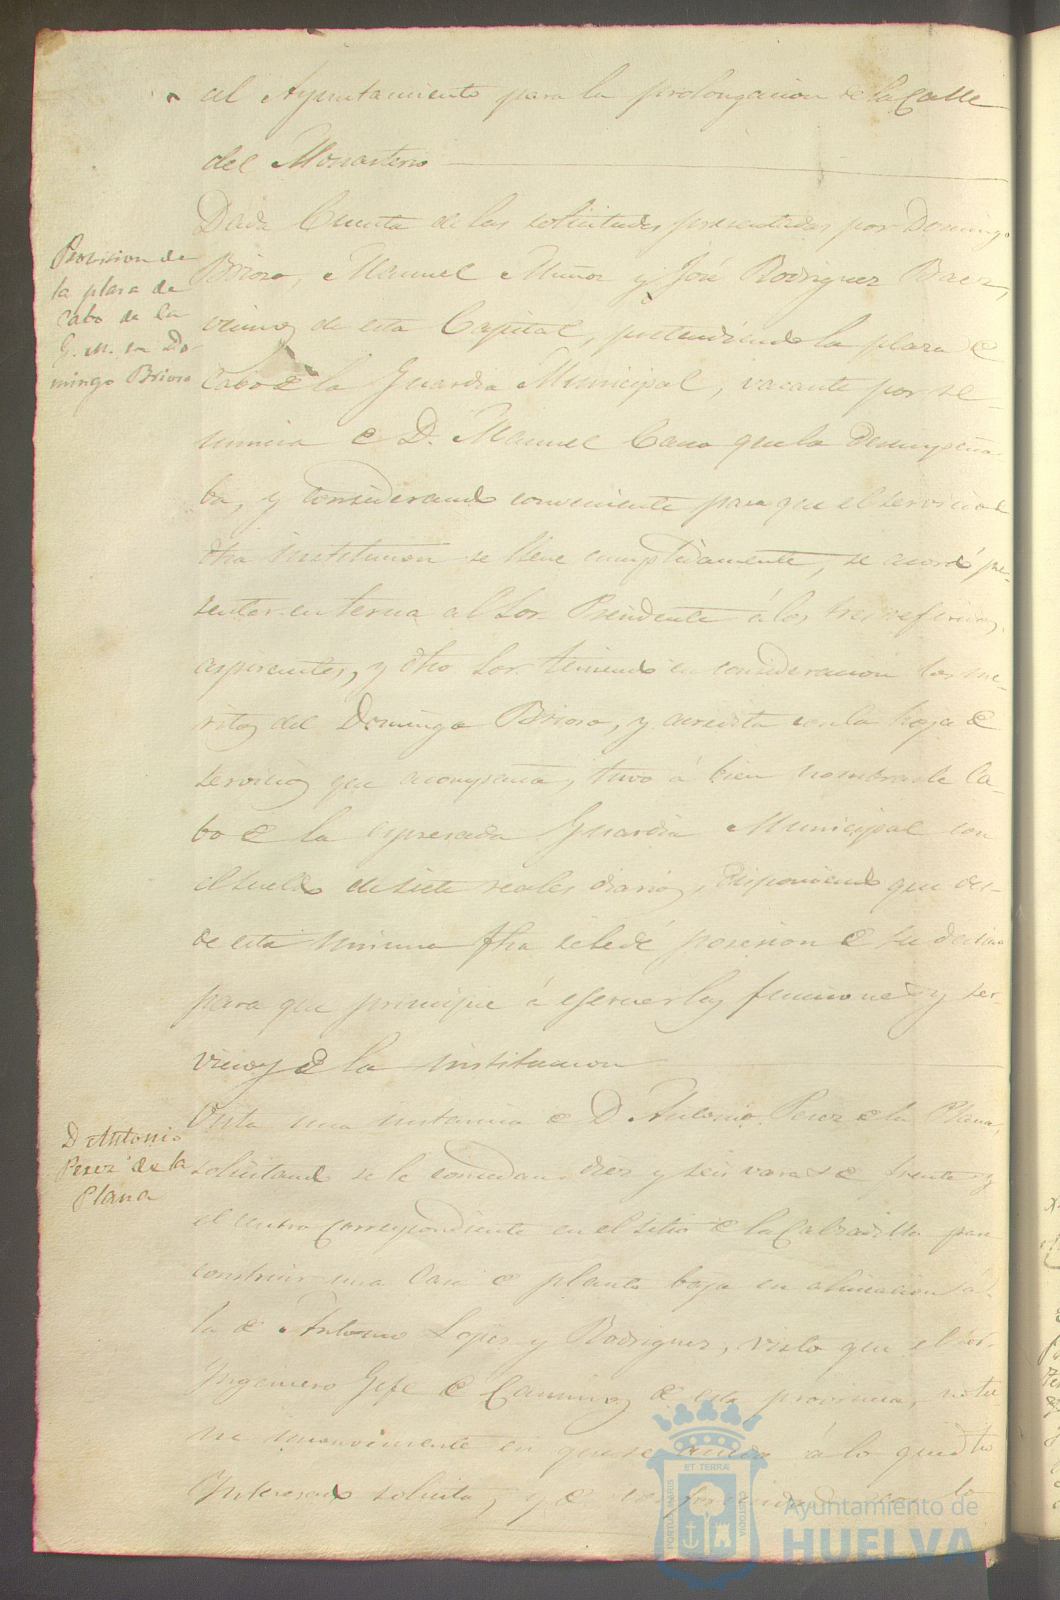 al Ayuntamiento para la prolongacion de la Calle
del Monasterio
Provision de
la plasa de
Cabo de la
G. M. en Do-
mingo Brioso
Dada Cuenta de las solicitudes presentadas por Domingo
Brioso, Manuel Muñoz y José Rodriguez Baez,
vecinos de esta Capital, pretendiendo la plaza de
Cabo de la Guardia Municipal, vacante por re-
nuncia de D. Manuel Cano que la desempeña-
ba, y considerando conveniente para que el servicio de
dha institucion se llene cumplidamente, se acordó pre-
sentar en terna al Sor. Presidente á los tres referidos
aspirantes, y dho Sor. teniendo en consideracion los me-
ritos del Domingo Brioso, y acredita con la hoja de
servicios que acompaña, tuvo á bien nombrarle Ca-
bo de la espresada Guardia Municipal con
el sueldo de siete reales diarios, disponiendo que des-
de esta misma fha se le dé posesion de su destino
para que principie á ejercer las funciones y ser-
vicios de la institucion
D Antonio
Perez de la
Plana
Vista una instancia de D. Antonio Perez de la Plana,
solicitando se le concedan diez y seis varas de frente y
el centro correspondiente en el sitio de la Calzadilla para
construir una Casa de planta baja en alineacion á
la de Antonio Lopez y Rodriguez, visto que el Sor.
Ingeniero Gefe de Caminos de esta provincia, no tie-
ne inconveniente en que se acceda á lo que dho
Interesado solicita, y de conformidad con lo
PORTUS MARIS
ET TERRÆ
CUSTODIA
Ayuntamiento de
HUELVA